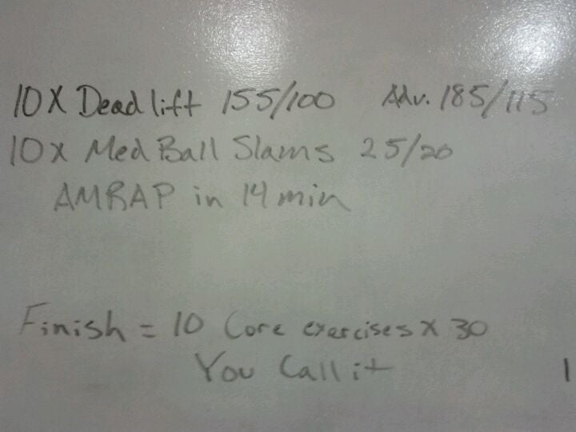 10X Deadlift 155/100 Adv. 185/115
10x Med Ball Slams 25/20
AMRAP in 14 min
Finish = 10 Core exercises x 30
You Call it
1